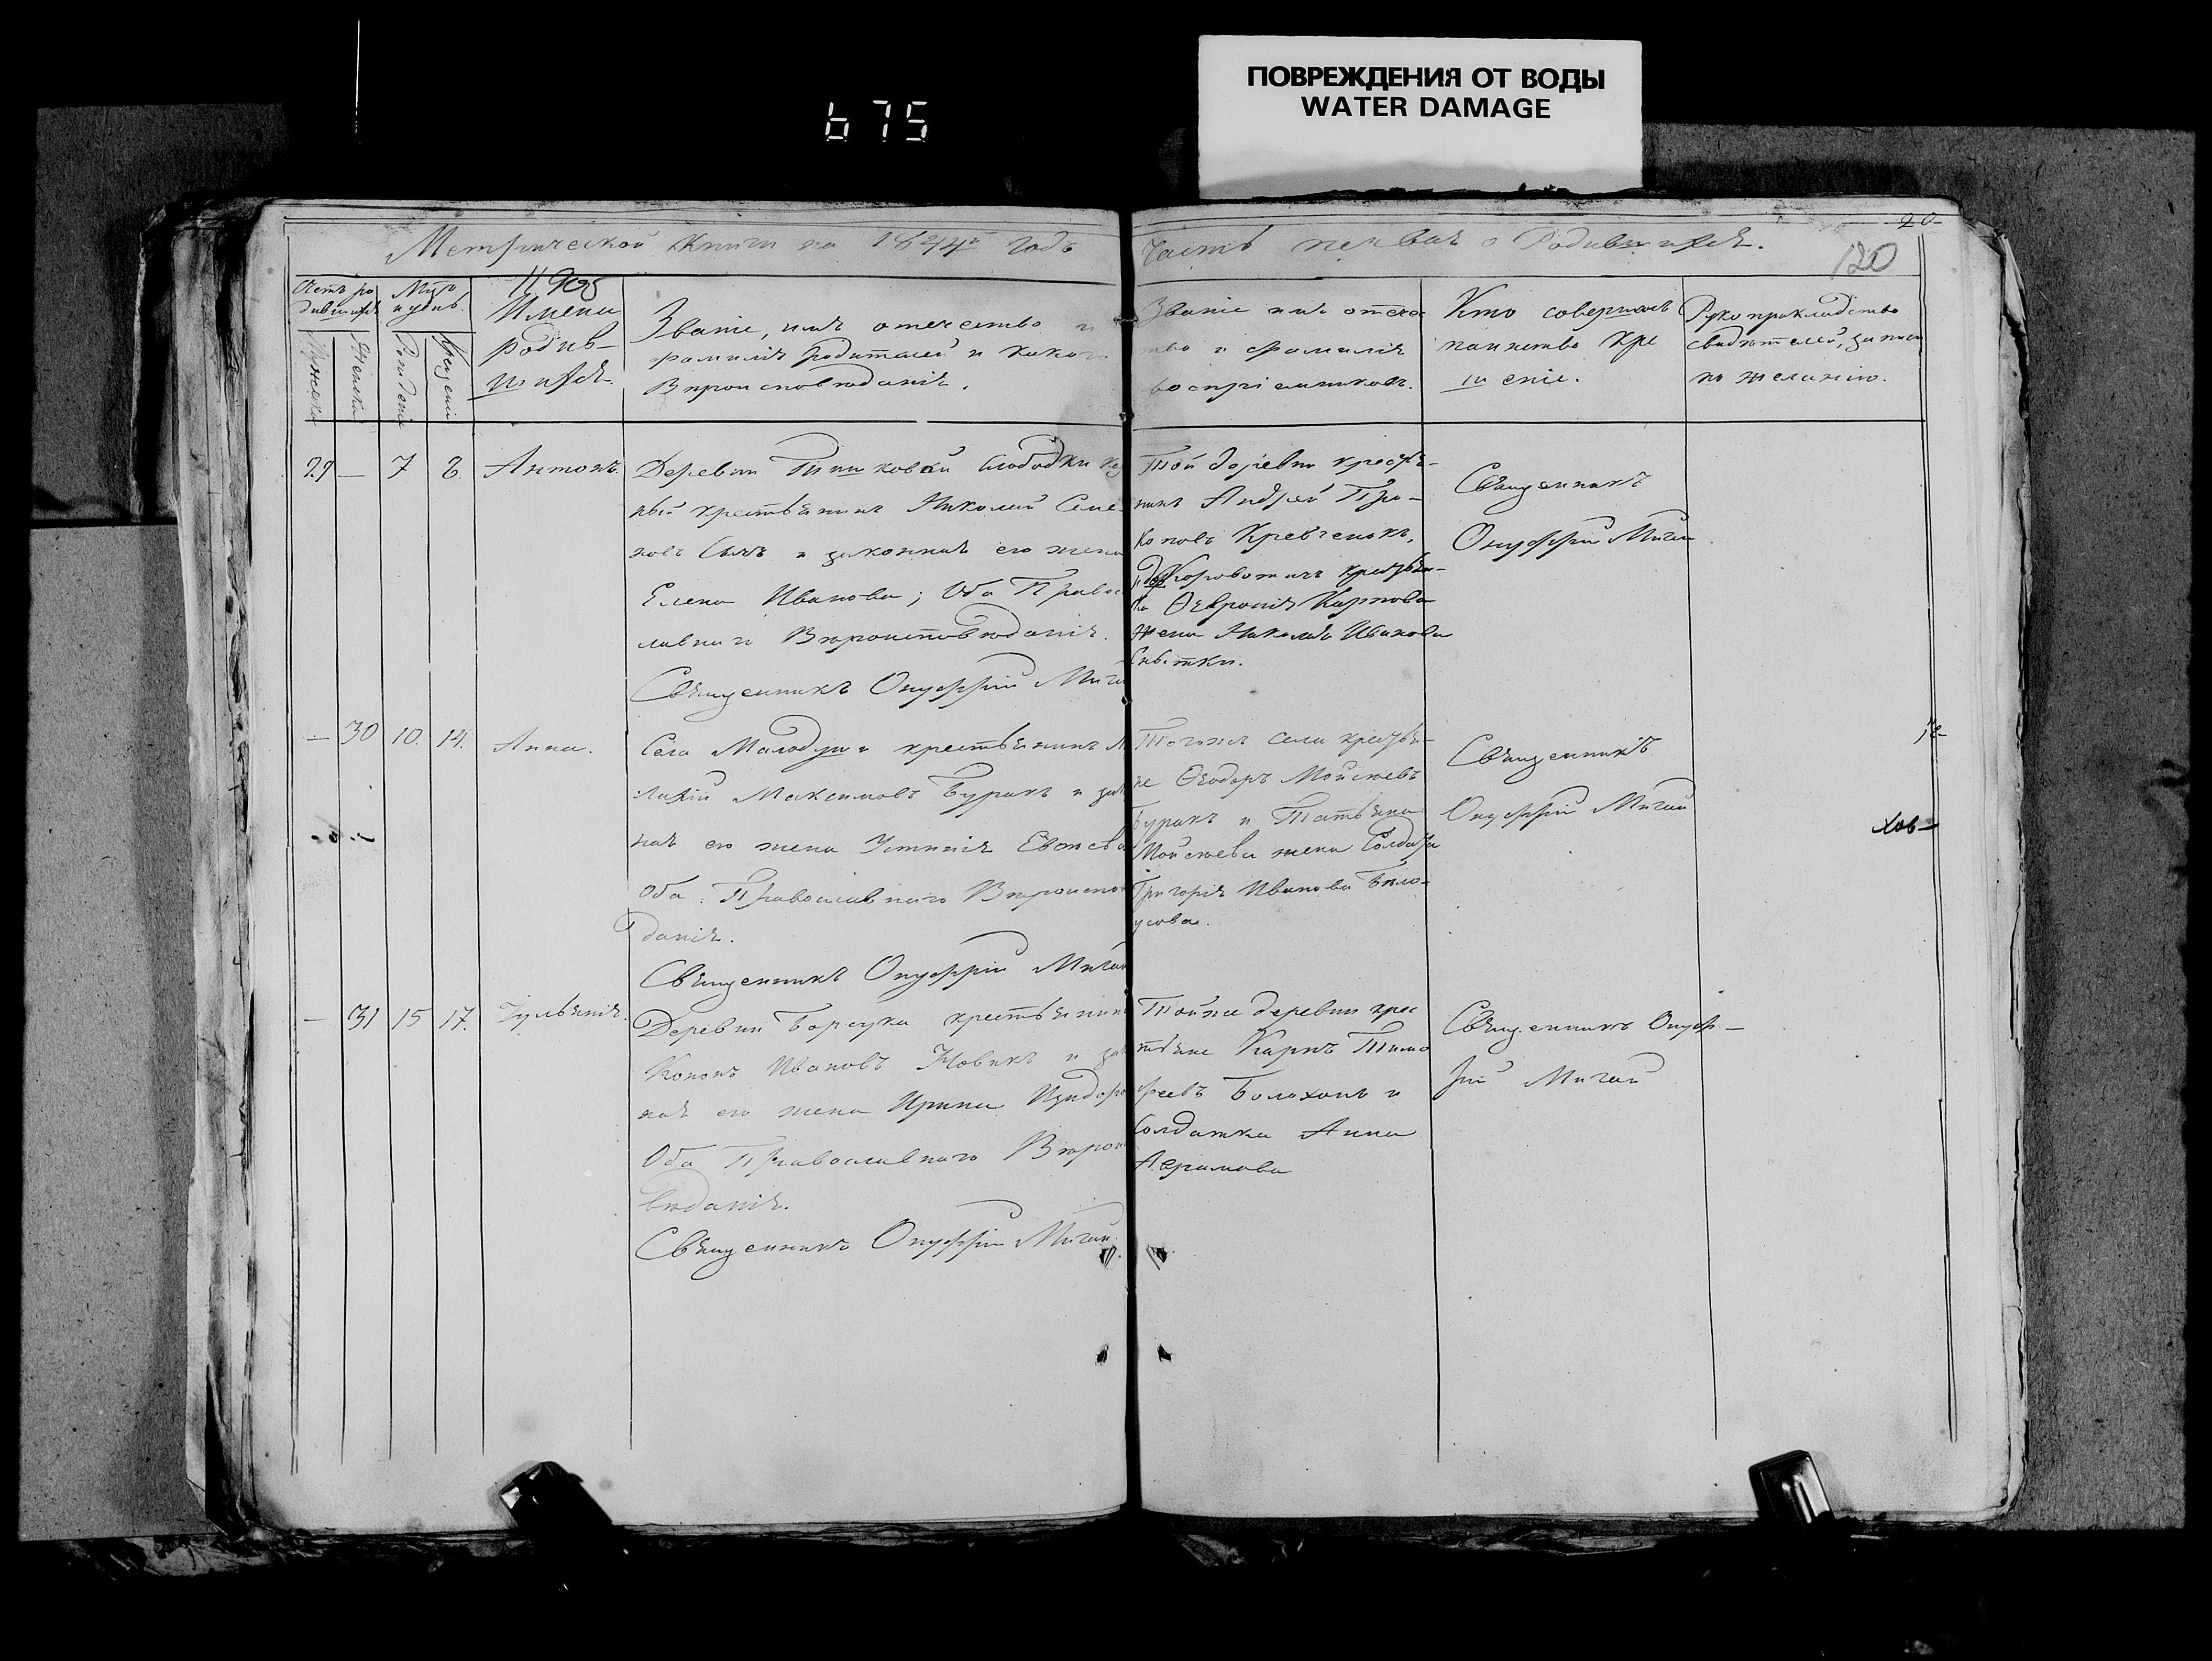 ПОВРЕЖДЕНИЯ ОТ ВОДЫ
WATER DAMAGE
675
20
120
Метрической книги на 1844й годъ
Часть первая о Родившихся.
Счетъ ро
дившихся
Мужеска
Женска
Мѣс:
и день
Рожденія
Крещенія
Имена
родив-
шихся.
Званіе, имя отечество и
фамилія родителей и какого
Вѣроисповѣданія.
Званіе имя отече
тво и фамилія
воспріемниковъ.
Кто совершалъ
таинство кре
щеніе.
Рукоприкладство
свидѣтелей, записи
по желанію.
29 — 7 8 Антонъ.
Деревни Тишковой Слободки
ный крестьянинъ Николай Семе
новъ и законная его жена
Елена Иванова; Оба Право
лавнаго Вѣроисповѣданія.
Священникъ Онуфрій Мигай
Той деревни крестья-
нинъ Андрей Про-
коповъ Кревченокъ,
крестьян-
ка Ѳевронія Карпова
жена Николая Иванова
Снытки.
Священникъ
Онуфрій Мигай
— 30 10. 14. Анна.
Села Малодуши крестьянинъ
лахій Максимовъ Буракъ и зак
ная его жена Устинія
Оба Православнаго Вѣроиспов
данія.
Священникъ Онуфрій Мигай
Тогожъ села крестья-
не Ѳеодоръ Мойсѣевъ
Буракъ и Татьяна
Мойсѣева жена Солдата
Григорія Иванова Бѣло-
усова.
Священникъ
Онуфрій Мигай
хов-
— 31 15 17. Іульянія.
Деревни Борсука крестьянин
Кононъ Ивановъ Новикъ и зак
ная его жена Ирина Изидоро
Оба Православнаго Вѣроис
вѣданія.
Священникъ Онуфрій Мигай.
Тойже деревни крес
тьяне Карпъ Тимо
феевъ Болохонъ и
Солдатка Анна
Аврамова
Священникъ Онуф-
рій Мигай